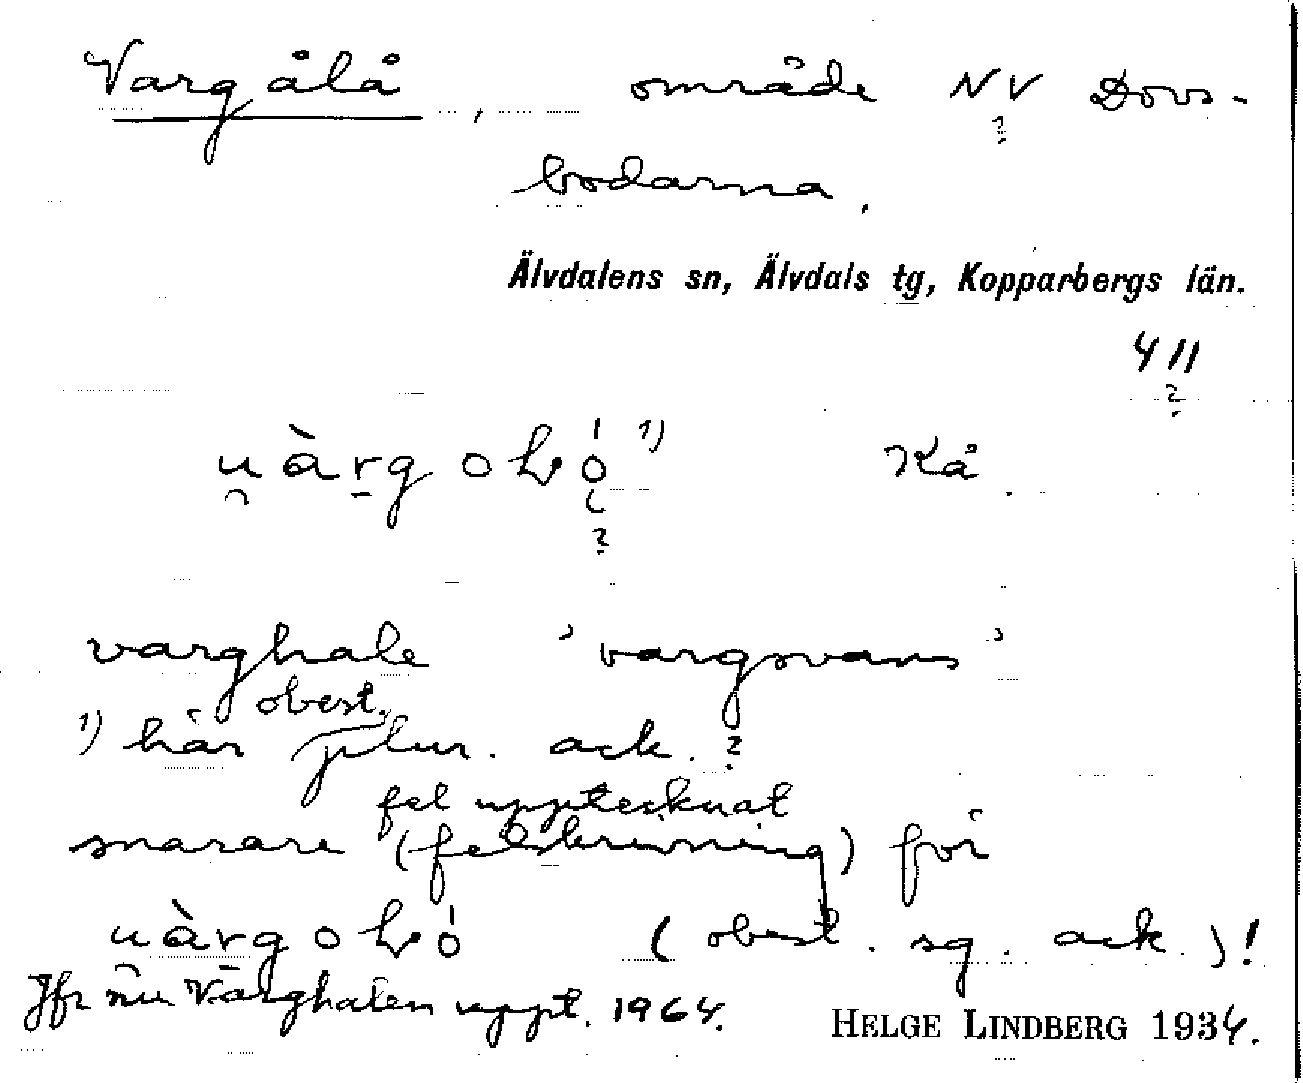 Vargålå, område NV Dovs-
?
bodarna.
Älvdalens sn, Älvdals tg, Kopparbergs län.
411
?
Kå
?
varghale 'vargsvans'
obest.
1) här plur. ack.?
fel upptecknat
snarare (felskrivning) för
(obest. sg. ack.)!
Jfr nu Varghalen uppt. 1964.
HELGE LINDBERG 1934.